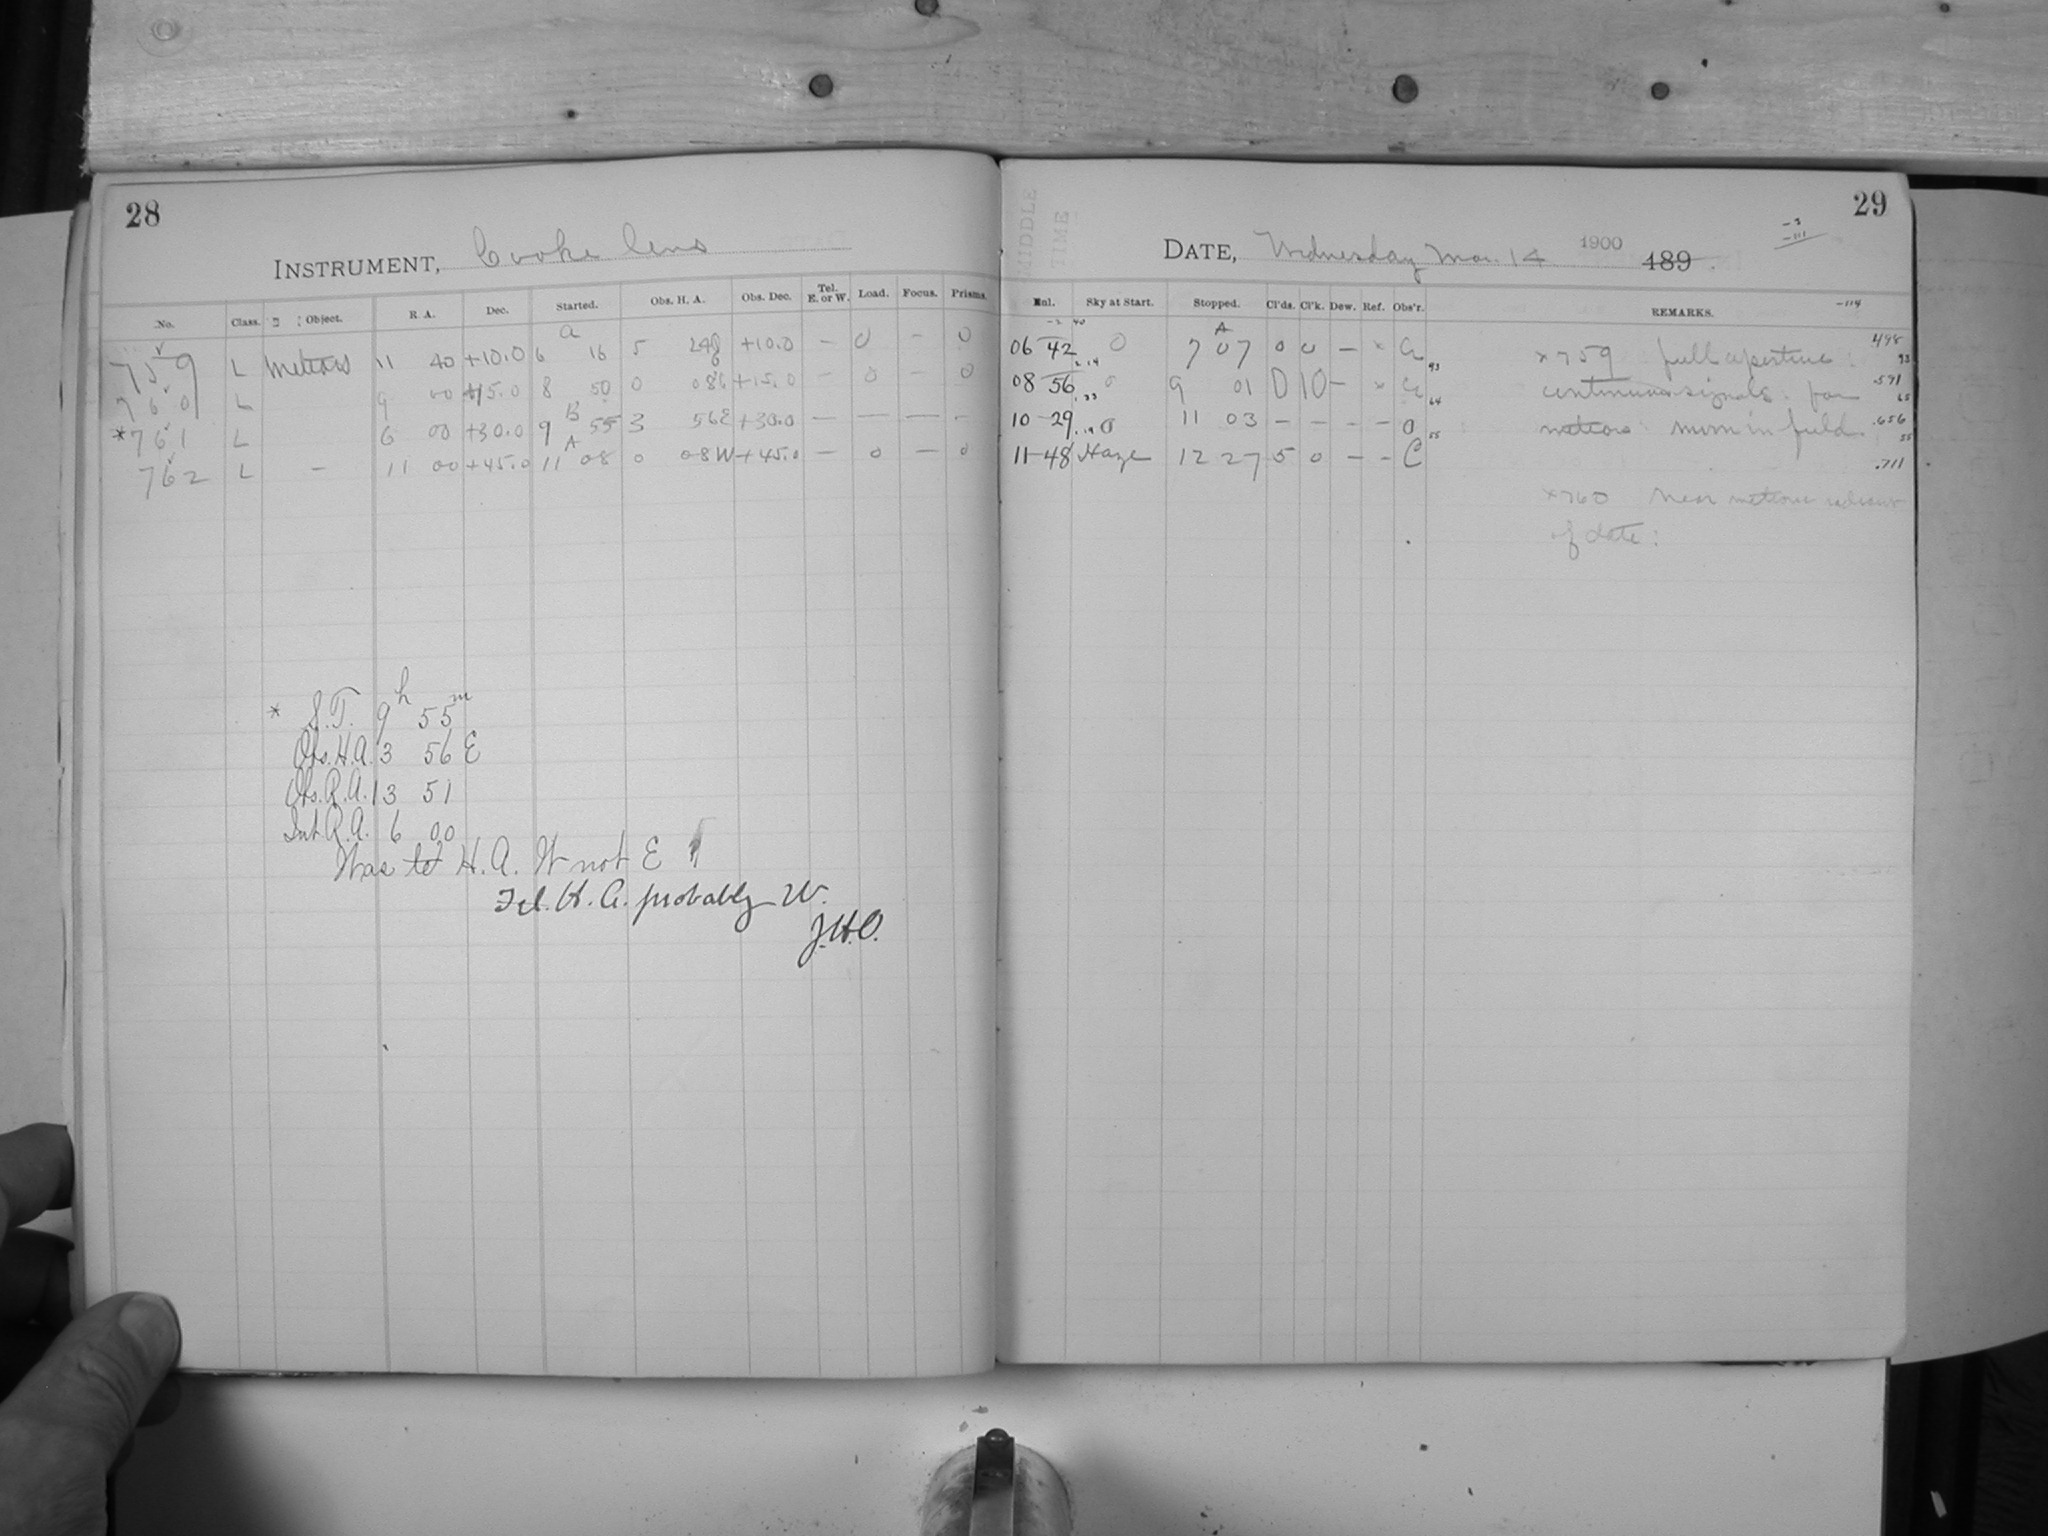 28
INSTRUMENT, Cooke lens
No. Class. Object. R. A. Dec. Started. Obs. H. A. Obs. Dec. Tel. E. or W. Load. Focus. Prisms.
759 L Meteors 11 40 +10.0 6 A 16 5 24 +10.0 — 0 — 0
760 L 9 00 +15.0 8 50 0 08 +15.0 — 0 — 0
*761 L 6 00 +30.0 9 B 55 3 56E +30.0 — — — —
762 L — 11 00 +45.0 11 A 08 0 08W +45.0 — 0 — 0
* S.T. 9h 55m
Obs. H.A. 3 56 E
Obs. R.A. 13 51
Int. R.A. 6 00
Was tel H. A. W not E
Tel. H. A. probably W.
J.H.O.
29
MIDDLE
TIME
DATE, Wednesday Mar. 14 1900 189
-3
-111
Sky at Start. Stopped. Cl'ds. Cl'k. Dew. Ref. Obs'r. REMARKS. -114
06 42 0 7 A 07 0 0 — × 93 ×759 full aperture: 498
08 56 0 9 01 0 10 — × 64 continuous signals. for .591
10-29 0 11 03 — — — — 0 55 meteors: moon in field .656
11-48 Haze 12 27 5 0 — — C .711
×760 Near meteor radiant
of date: